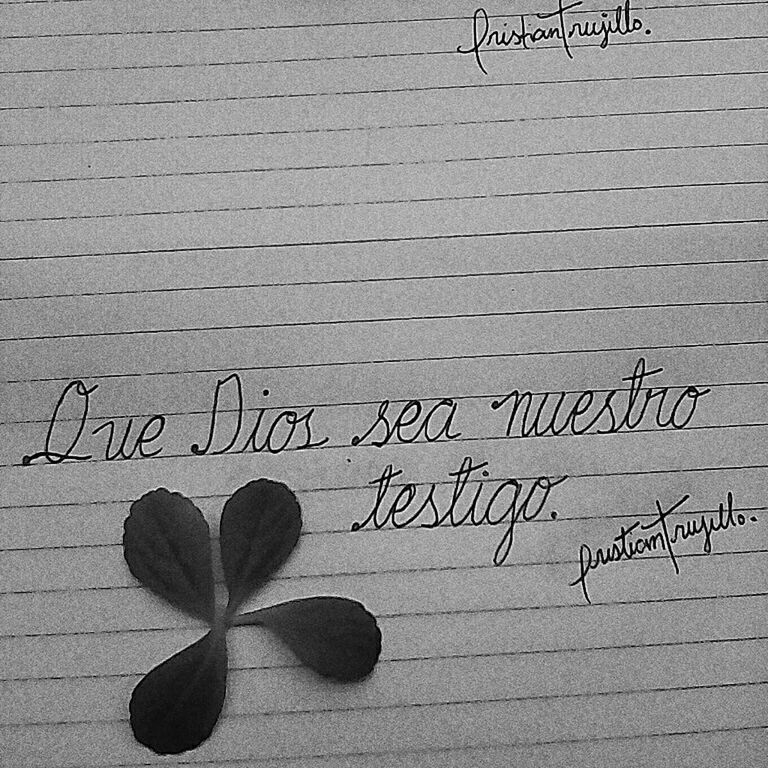 CristianTrujillo.
Que Dios sea nuestro
testigo.
CristianTrujillo.